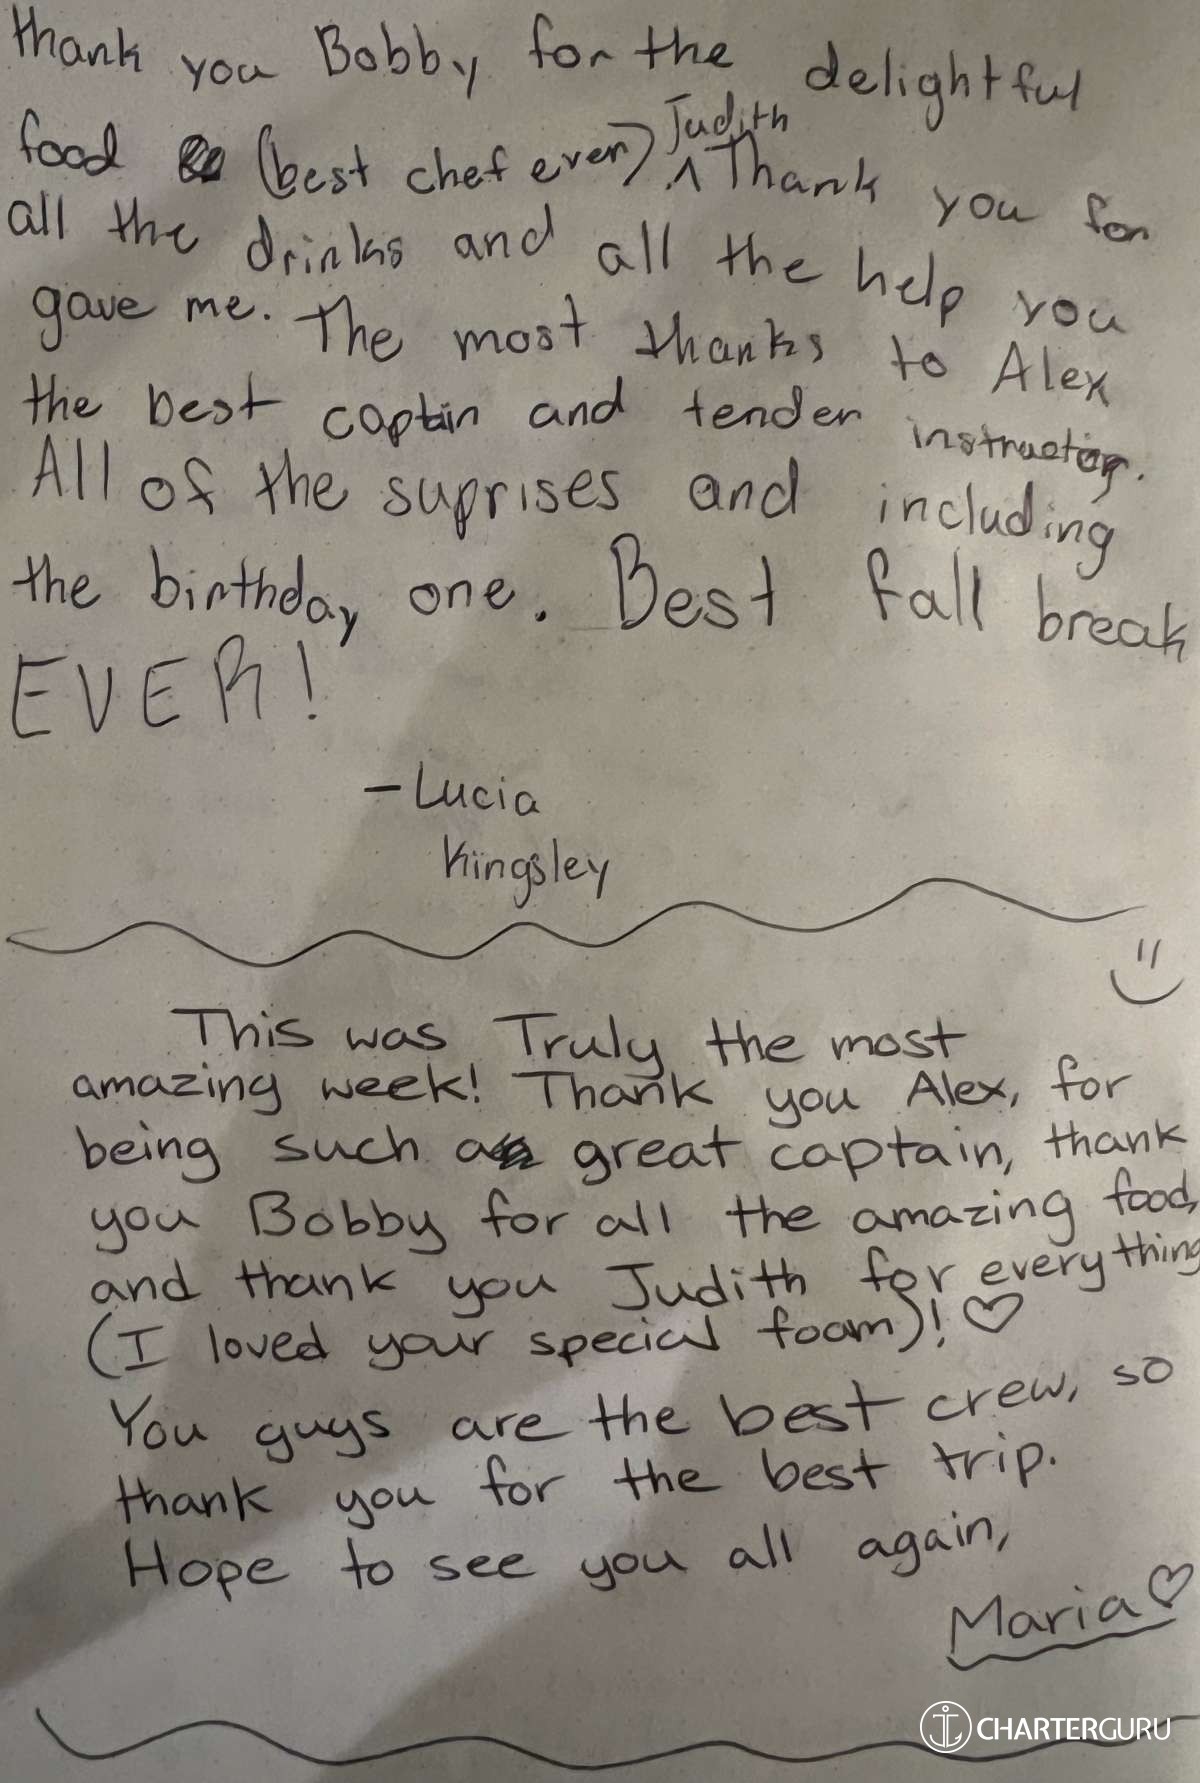 thank you Bobby for the delightful
food (best chef ever) ^ Judith Thank you for
all the drinks and all the help you
gave me. The most thanks to Alex
the best captin and tender instructor.
All of the suprises and including
the birthday one. Best fall break
EVER!
- Lucia
Kingsley
This was Truly the most
amazing week! Thank you Alex, for
being such a great captain, thank
you Bobby for all the amazing food,
and thank you Judith for everything
(I loved your special foam)! ♡
You guys are the best crew, so
thank you for the best trip.
Hope to see you all again,
Maria ♡
CHARTERGURU